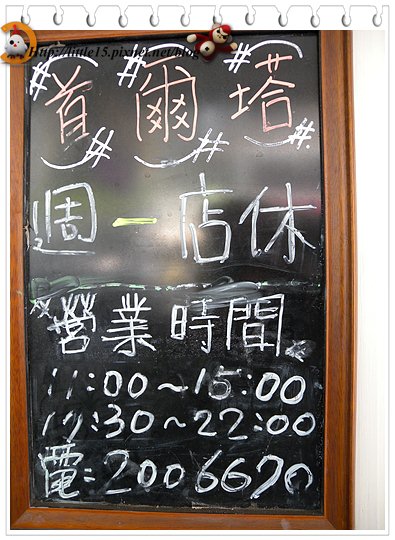 http://little15.pixnet.net/blog
# 首 # 爾 # 塔 #
週一店休
營業時間
11:00~15:00
17:30~22:00
電:2006670